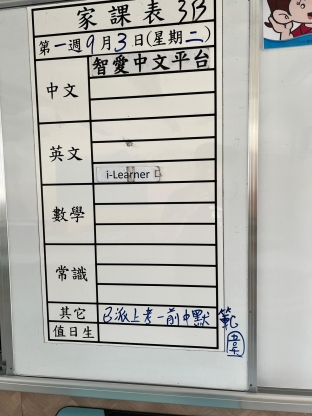 家課表 3B
第一週9月3日(星期二)
智愛中文平台
中文
英文
i-Learner
數學
常識
其它 已派上考一前中默範
值日生